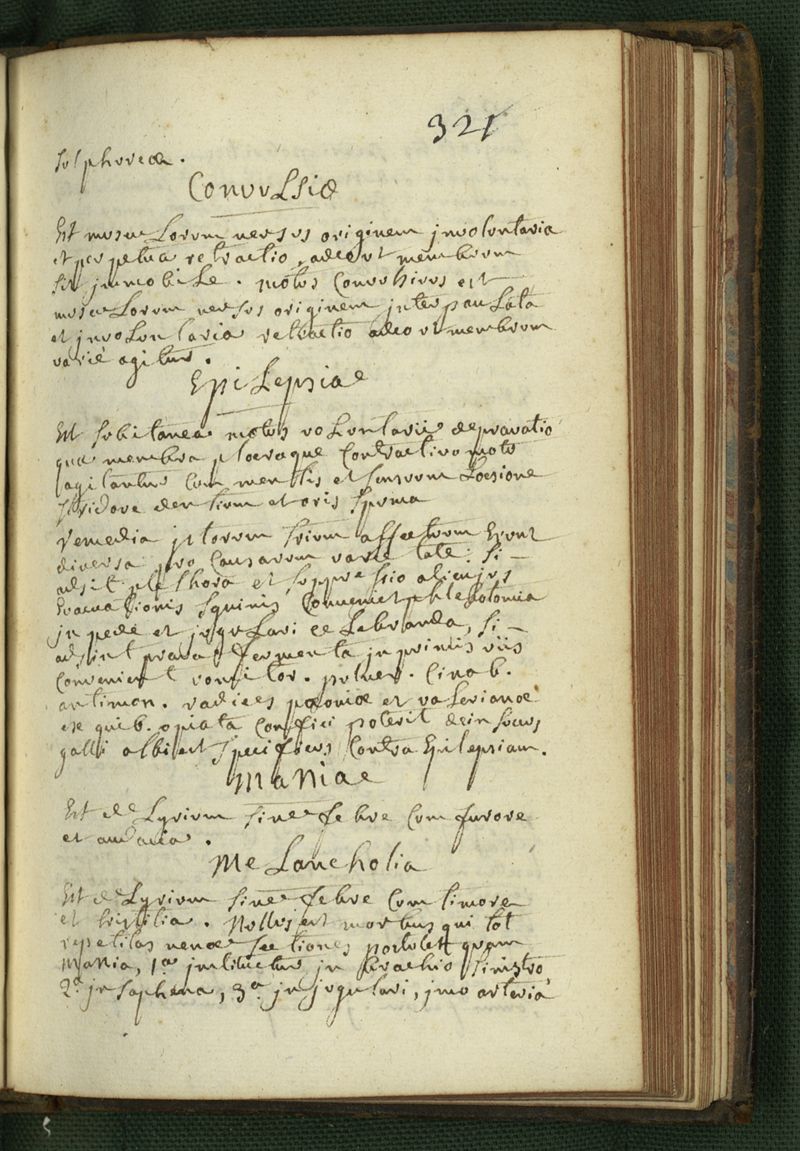 321
sulphureae.
ConvuLsiae
Est muscuLorum versus originem jnvoluntaria
et perpetua retractio, adeo ut membrum
sit jmmobiLe. motus convulsivus est
muscuLorum versus originem jnterpauLata
et jnvoLuntaria retractio adeo ut membrum
varié agitur.
EpiLepsiae
Est subitanea motus voLuntarii depravatio
qua membra pleraque contractivo motu
agitantur cum mentis et sensuum Loesione
stridore dentium et oris spuma
remedia jstorum trium affectuum erunt
diversa pro causarum varietate: si
adsit plethora et suppressio alicujus
evacuationis sguinis conveniet phlebotomia
jn pede et jugulari ceLebranda, si
adsint prava fermenta jn primis viis
convenient vomitor. pulver. cinab.
antimon. radices poeoniae et vaLerianae
ex quib. opiata confici poterit dein fucus
galli albi est specificus contra epilepsiam.
MaNiae
Est deLyrium sine febre cum furore
et audacia.
MeLancholia
Est deLyrium sine febre cum timore
et tristitia. Nullus est morbus qui tot
repetitas venae sectiones postulet quam
MaNia, 1a jnstituetur jn brachio sinistro
2a jn saphena, 3a jn jugulari, jmo arteriâ